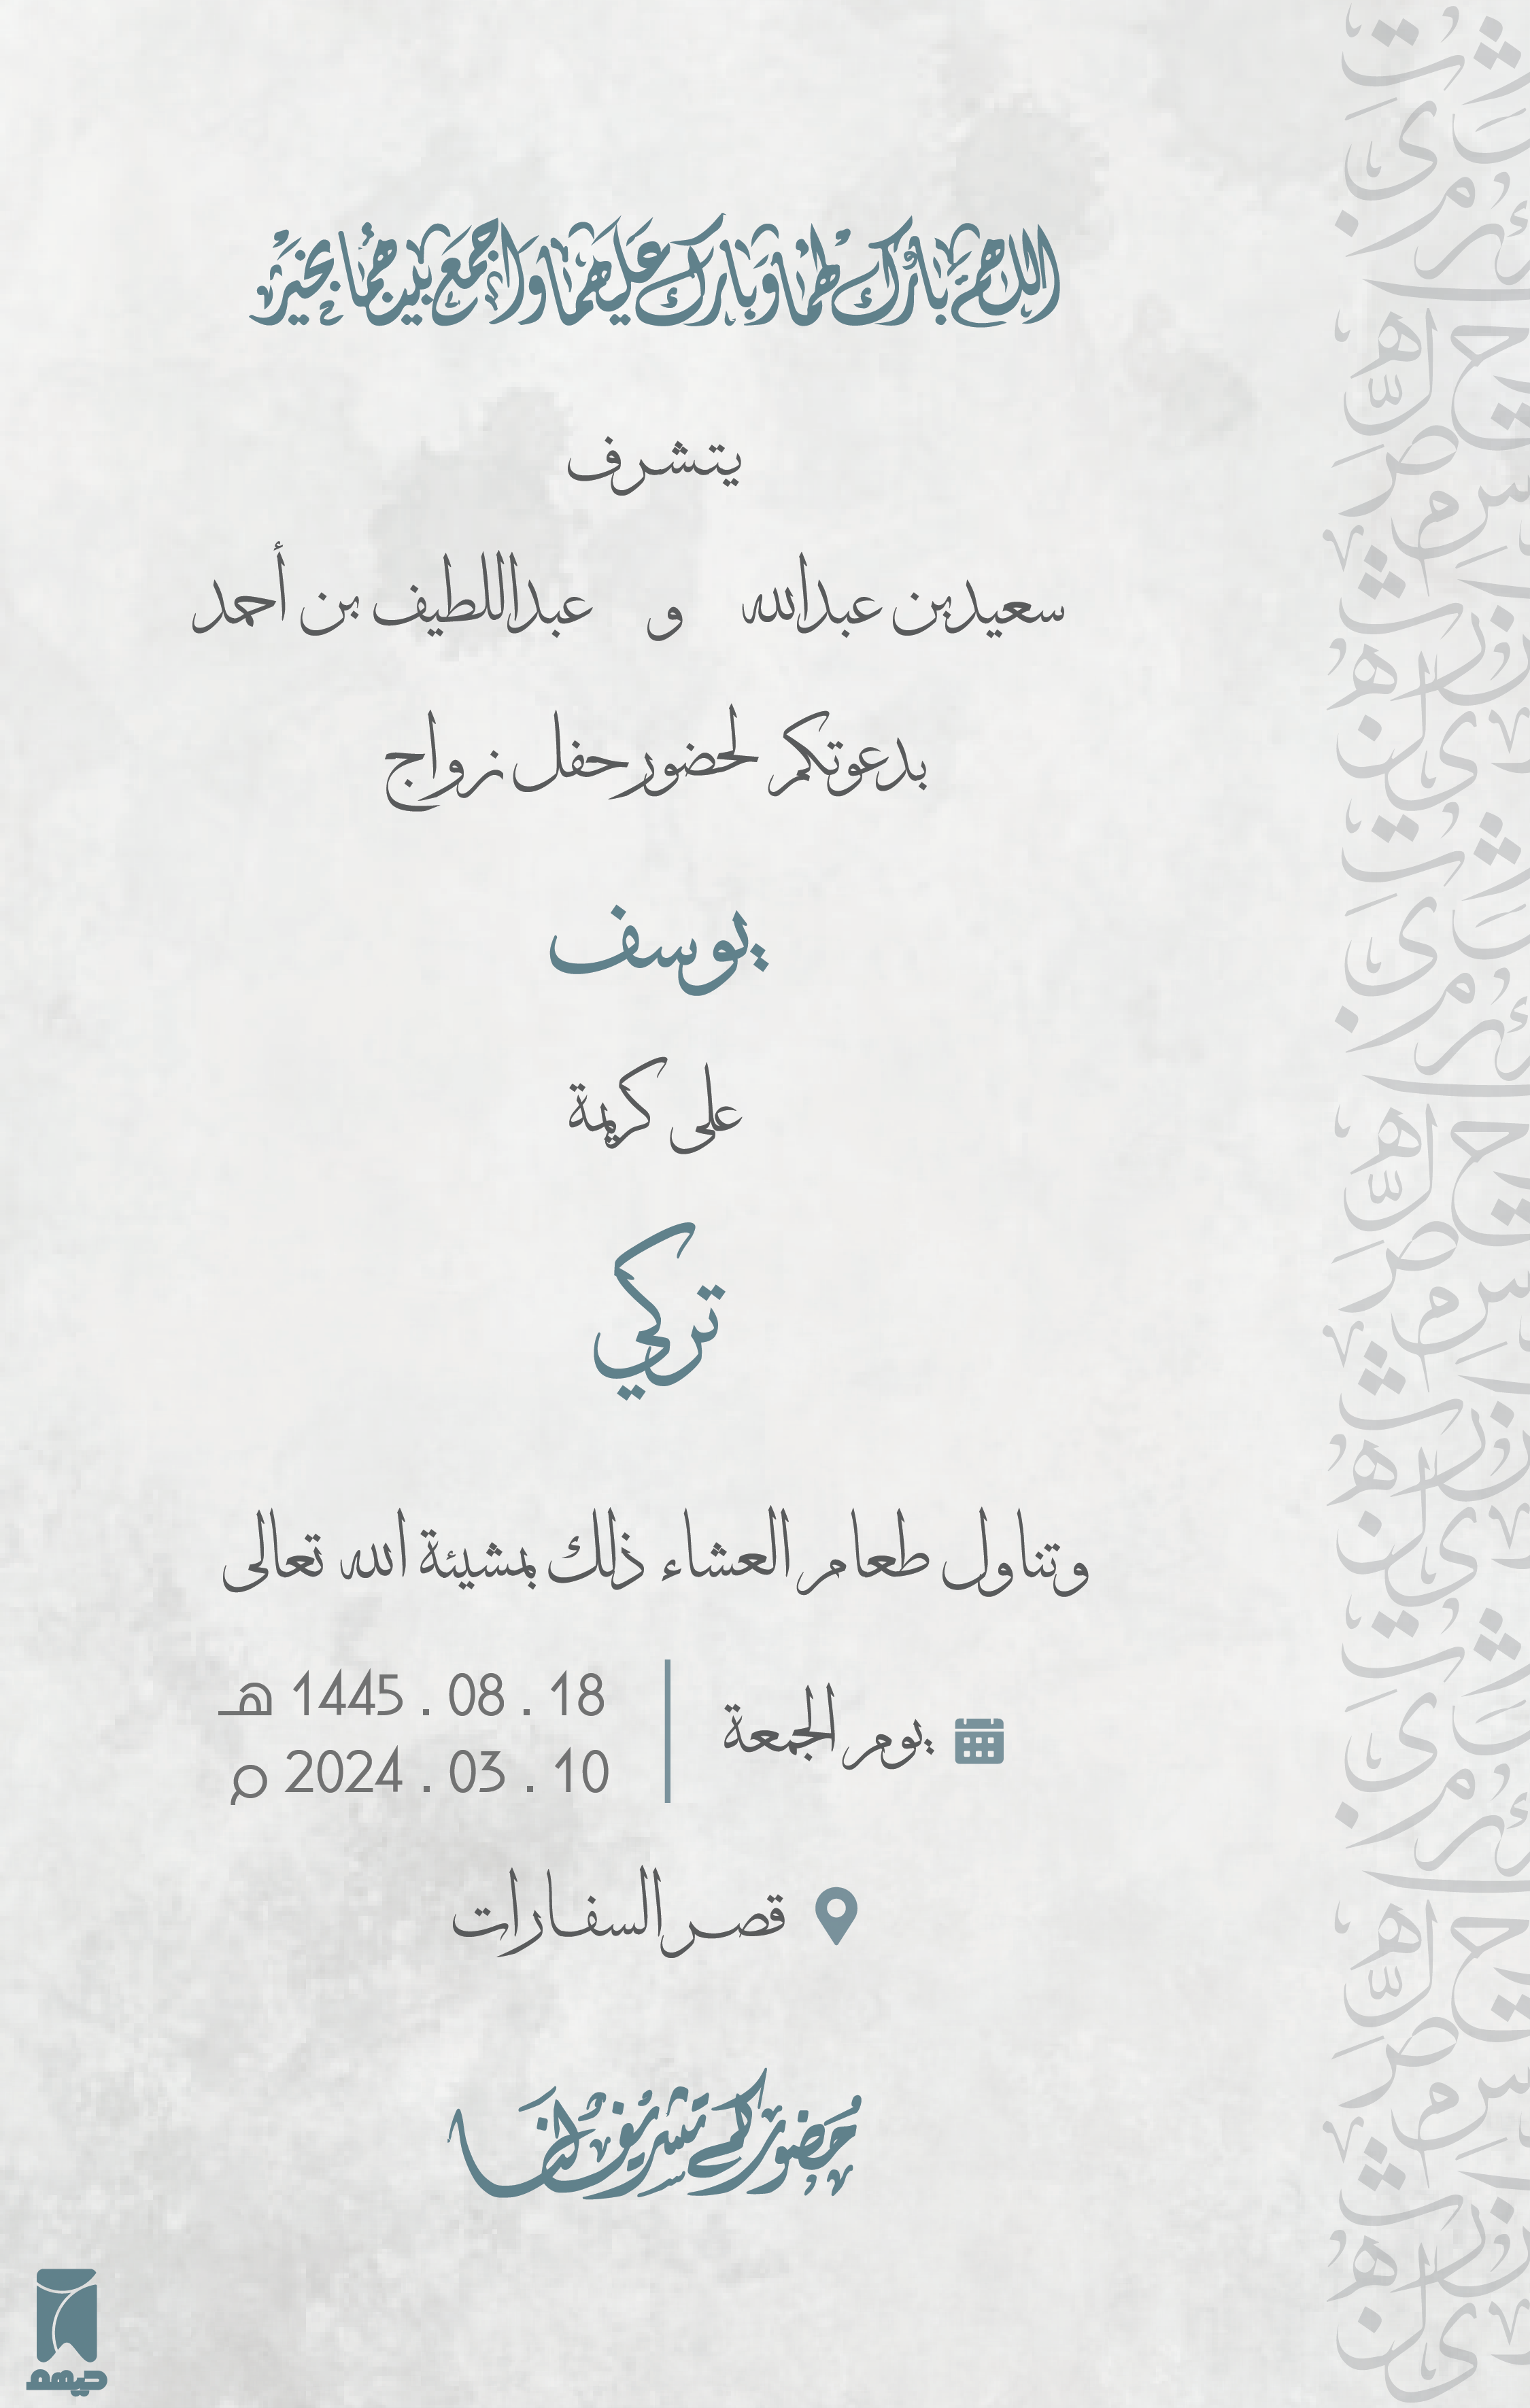 اللهم بارك لهما وبارك عليهما واجمع بينهما بخير
يتشرف
سعيد بن عبدالله و عبداللطيف بن أحمد
بدعوتكم لحضور حفل زواج
يوسف
على كريمة
تركي
وتناول طعام العشاء ذلك بمشيئة الله تعالى
يوم الجمعة
18 . 08 . 1445 هـ
10 . 03 . 2024 م
قصر السفارات
حضوركم تشريف لنا
حيهم